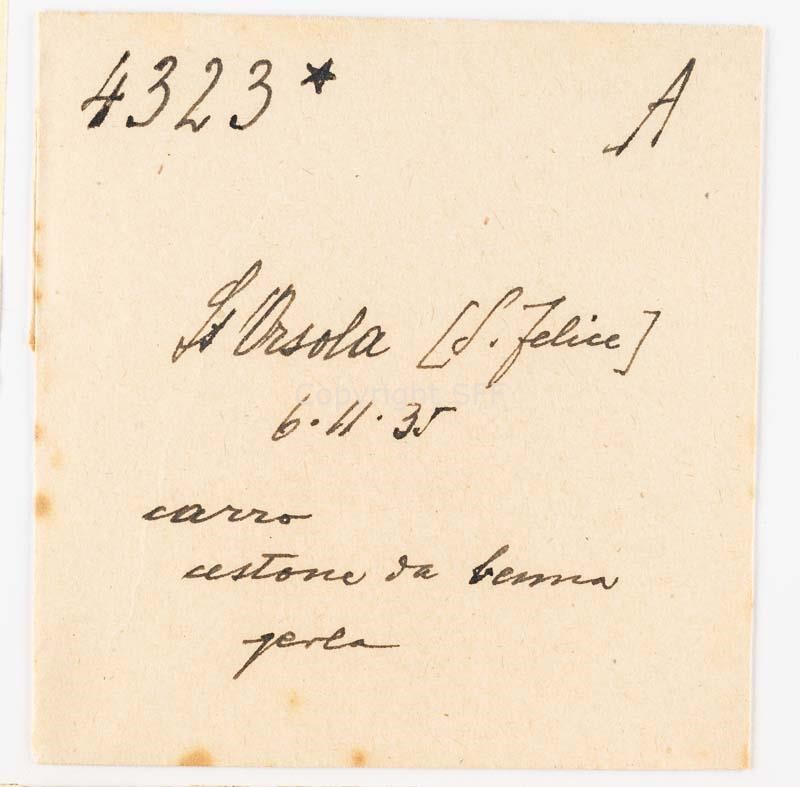 4323* A
St Orsola [S. Felice]
Copyright SFF
6.11.35
carro
cestone da benna
gerla